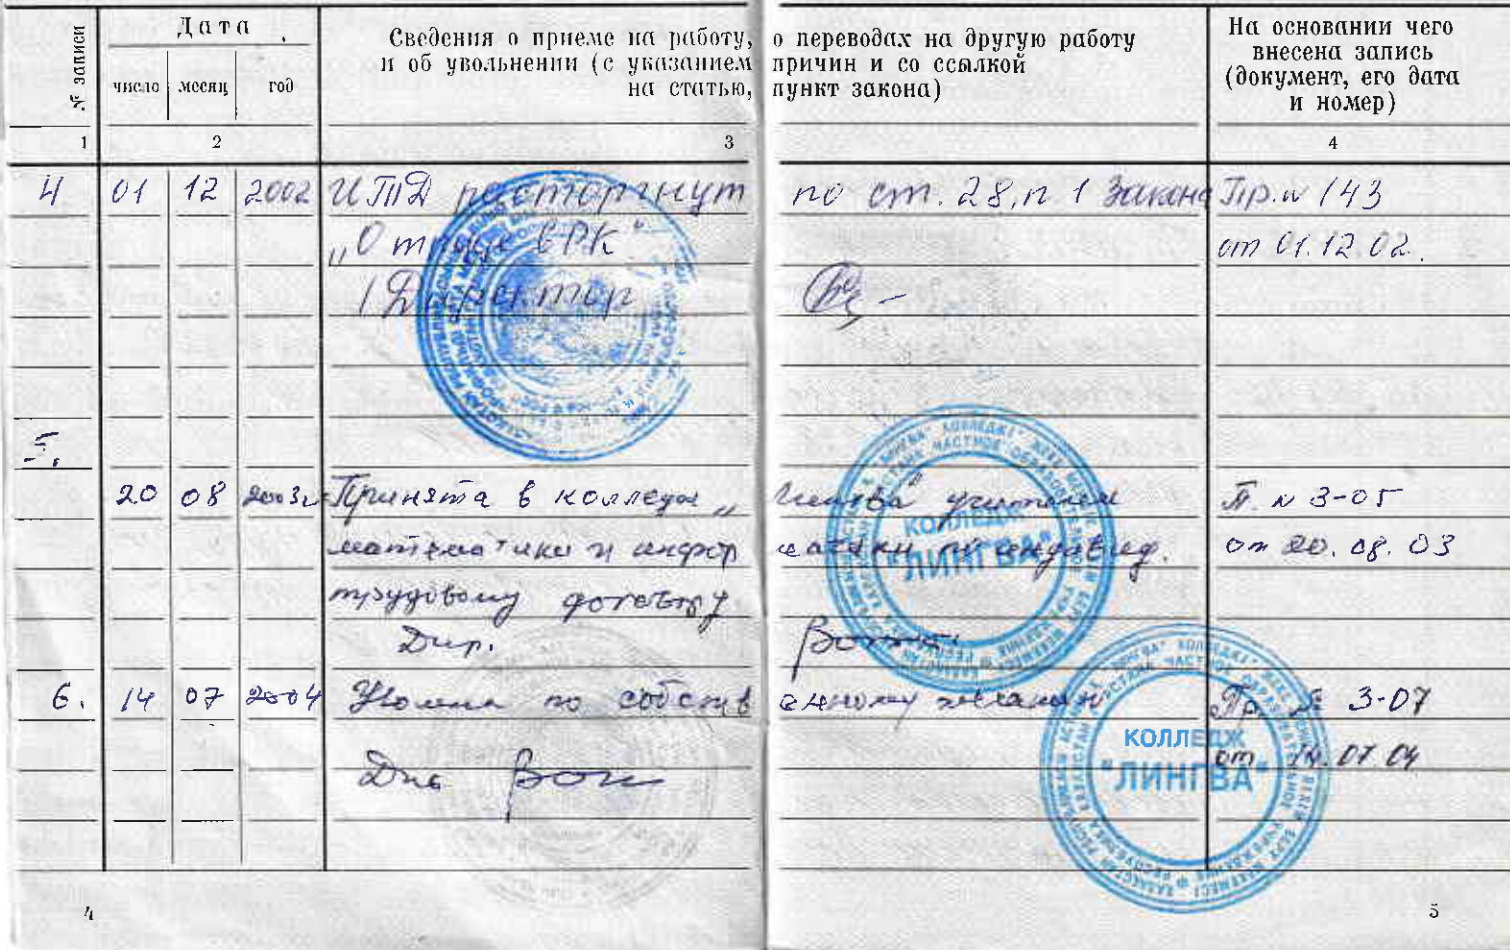 № записи
Дата
число месяц год
Сведения о приеме на работу, о переводах на другую работу
и об увольнении (с указанием причин и со ссылкой
на статью, пункт закона)
На основании чего
внесена запись
(документ, его дата
и номер)
1 2 3 4
4 01 12 2002 ИТД расторгнут по ст. 28, п 1 Закона Пр. N 143
„О труде в РК" от 01.12.02.
/Директор
5.
20 08 2003г. Принята в колледж „Лингва" учителем П. N 3-05
математики и информатики по индивид. от 20.08.03
трудовому договору
Дир.
КОЛЛЕДЖ
"ЛИНГВА"
6. 14 07 2004 по собственному желанию Пр. № 3-07
от 14.07.04
КОЛЛЕДЖ
"ЛИНГВА"
4 5